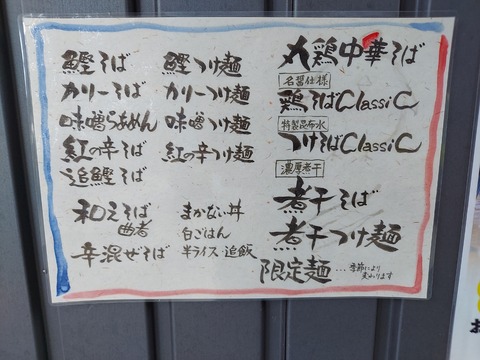 丸鶏中華そば
名醤仕様
鶏そばClassiC
特製昆布水
つけそばClassiC
濃厚煮干
煮干そば
煮干つけ麺
限定麺…季節により変わります
鰹そば
鰹つけ麺
カリーそば
カリーつけ麺
味噌らあめん
味噌つけ麺
紅の辛そば
紅の辛つけ麺
追鰹そば
和えそば
曲者
辛混ぜそば
まかない丼
白ごはん
半ライス・追飯
お